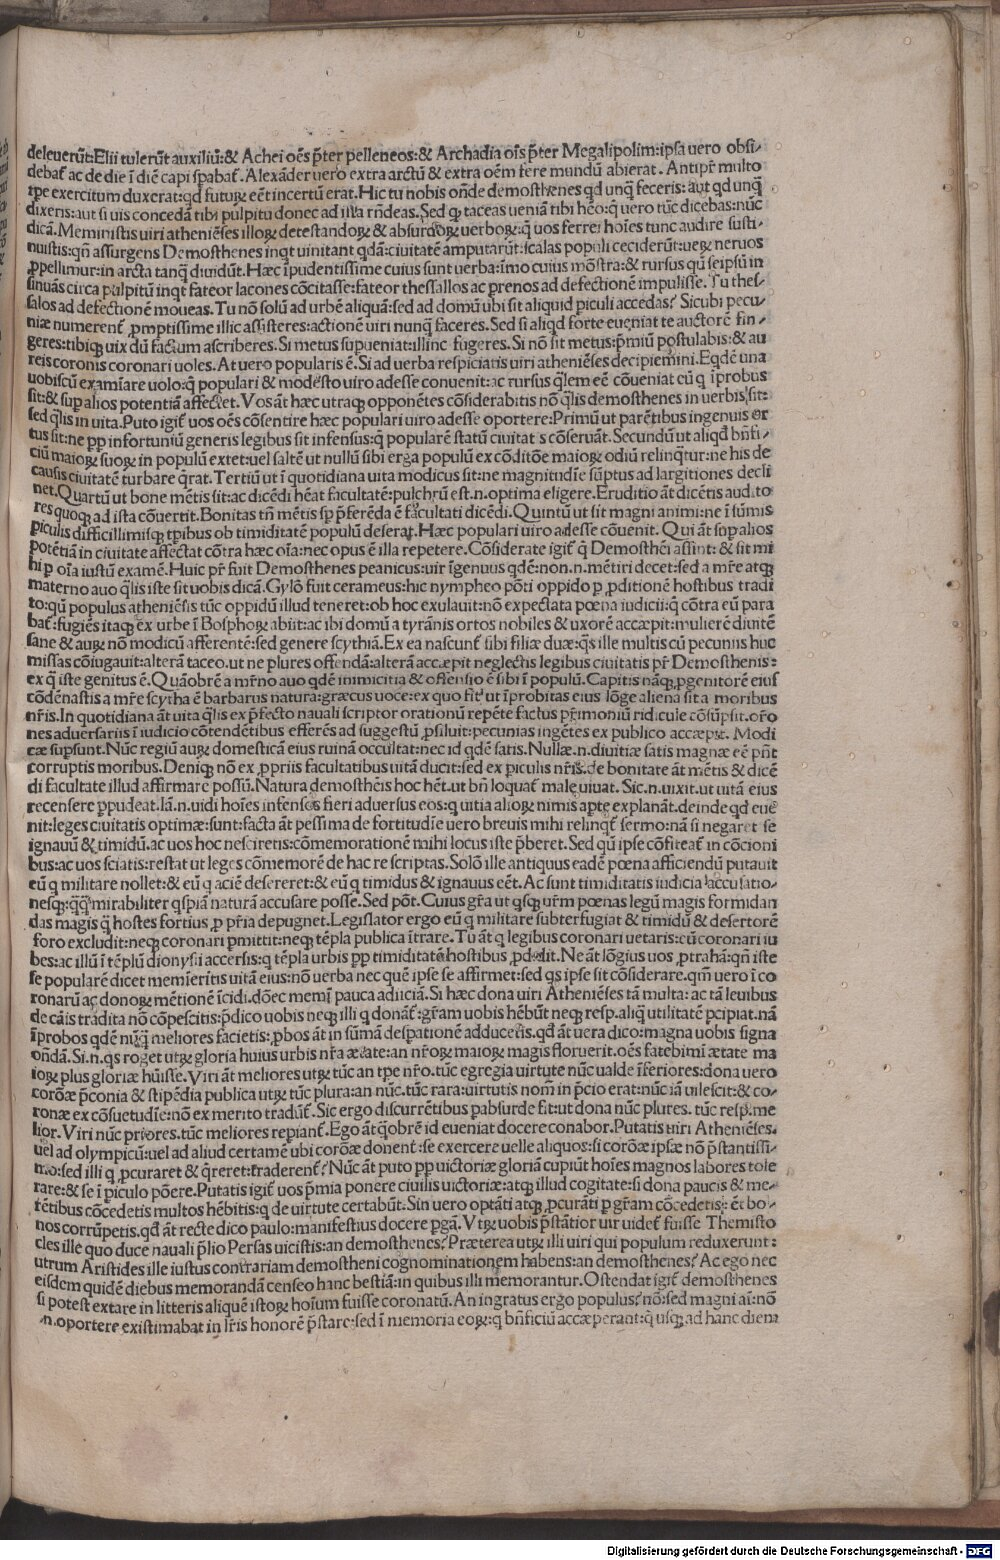 deleuerũt:Elii tulerũt auxiliũ:& Achei oẽs p̃ter pelleneos:& Archadia oĩs p̃ter Megalipolim:ipsa uero obsi-
debat̃ ac de die ĩ diẽ capi spabat̃. Alexãder uero extra arctũ & extra oẽm fere mundũ abierat. Antipr̃ multo
tpe exercitum duxerat:qđ futurꝫ eẽt incertũ erat. Hic tu nobis oñde demosthenes qđ unq̃ feceris: aut qđ unq̃
dixeris:aut si uis concedã tibi pulpitũ donec ad illa rñdeas. Sed qꝫ taceas ueniã tibi hẽo:q̃ uero tũc dicebas:nũc
dicã. Meministis uiri atheniẽses illoꝝ detestandoꝝ & absurdoꝝ uerboꝝ:q̃ uos ferrei hoĩes tunc audire susti-
nuistis:qñ assurgens Demosthenes inqt uinitant qdã:ciuitatẽ amputarũt:scalas populi ceciderũt:ueꝝ neruos
ꝓpellimur:in arcta tanq̃ diuidũt. Hæc ĩpudentissime cuius sunt uerba:ĩmo cuius mõstra:& rursus qũ seipsũ in
sinuãs circa pulpitũ inqt fateor lacones cõcitasse:fateor thessallos ac prenos ad defectionẽ impulisse. Tu thes-
salos ad defectionẽ moueas. Tu nõ solũ ad urbẽ aliquã:sed ad domũ ubi sit aliquid piculi accedas? Sicubi pecu-
niæ numerent̃ ꝓmptissime illic assisteres:actionẽ uiri nunq̃ faceres. Sed si aliqđ forte eueniat te auctorẽ fin-
geres:tibiqꝫ uix dũ factum ascriberes. Si metus supueniat:illinc fugeres. Si nõ sit metus:p̃miũ postulabis:& au
reis coronis coronari uoles. At uero popularis ẽ. Si ad uerba respiciatis uiri atheniẽses decipiemini. Eqdẽ una
uobiscũ examĩare uolo:q̃ populari & modesto uiro adesse conuenit:ac rursus q̃lem eẽ cõueniat eũ q ĩprobus
sit:& sup alios potentiã affectet. Vos ãt hæc utraqꝫ opponẽtes cõsiderabitis nõ q̃lis demosthenes in uerbis sit:
sed q̃lis in uita. Puto igit̃ uos oẽs cõsentire hæc populari uiro adesse oportere:Primũ ut parẽtibus ingenuis or
tus sit:ne pp infortuniũ generis legibus sit infensus:q̃ popularẽ statũ ciuitatis cõseruãt. Secundũ ut aliqđ bñfi-
ciũ maioꝝ suoꝝ in populũ extet:uel saltẽ ut nullũ sibi erga populũ ex cõditõe maioꝝ odiũ relinq̃tur:ne his de
causis ciuitatẽ turbare q̃rat. Tertiũ ut ĩ quotidiana uita modicus sit:ne magnitudĩe sũptus ad largitiones decli
net. Quartũ ut bone mẽtis sit:ac dicẽdi hẽat facultatẽ:pulchrũ est.n.optima eligere. Eruditio ãt dicẽtis audito
res quoqꝫ ad ista cõuertit. Bonitas tñ mẽtis sp p̃ferẽda ẽ facultati dicẽdi. Quintũ ut sit magni animi:ne ĩ sũmis
piculis difficillimisqꝫ tpibus ob timiditatẽ populũ deserat. Hæc populari uiro adesse cõuenit. Qui ãt sup alios
potẽtiã in ciuitate affectat cõtra hæc oĩa:nec opus ẽ illa repetere. Cõsiderate igit̃ q̃ Demostheĩ assint:& sit mi
hi p oĩa iustũ examẽ. Huic pr̃ fuit Demosthenes peanicus:uir ĩgenuus qdẽ:non.n.mẽtiri decet:sed a mr̃e atqꝫ
materno auo q̃lis iste sit uobis dicã. Gylõ fuit cerameus:hic nympheo põti oppido p ꝓditionẽ hostibus tradi
to:qũ populus atheniẽsis tũc oppidũ illud teneret:ob hoc exulauit:nõ expectata pœna iudicii:q̃ cõtra eũ para
bat̃:fugiẽs itaqꝫ ex urbe ĩ Bosphoꝝ abiit:ac ibi domũ a tyrãnis ortos nobiles & uxorẽ accæpit:mulierẽ diuitẽ
sane & auꝝ nõ modicũ afferentẽ:sed genere scythiã. Ex ea nascunt̃ sibi filiæ duæ:q̃s ille multis cũ pecuniis huc
missas cõiugauit:alterã taceo.ut ne plures offendã:alterã accæpit neglectis legibus ciuitatis pr̃ Demosthenis:
ex q̃ iste genitus ẽ. Quãobrẽ a mr̃no auo qdẽ inimicitia & offensio ẽ sibi ĩ populũ. Capitis nãqꝫ ꝓgenitorẽ eius
cõdẽnastis a mr̃e scytha ẽ barbarus natura:græcus uoce:ex quo fit ut ĩprobitas eius lõge aliena sit a moribus
nr̃is. In quotidiana ãt uita q̃lis ex p̃fecto nauali scriptor orationũ repẽte factus pr̃imoniũ ridicule cõsũpsit.oro
nes aduersariis ĩ iudicio cõtendẽtibus efferẽs ad suggestũ ꝓsiluit:pecunias ingẽtes ex publico accæpit. Modi
cæ supsunt. Nũc regiũ auꝝ domesticã eius ruinã occultat:nec id qdẽ satis. Nullæ.n.diuitiæ satis magnæ eẽ pñt
corruptis moribus. Deniqꝫ nõ ex ꝓpriis facultatibus uitã ducit:sed ex piculis nr̃is.de bonitate ãt mẽtis & dicẽ
di facultate illud affirmare possũ. Natura demosthẽis hoc hẽt.ut bñ loquat̃ male uiuat. Sic.n.uixit.ut uitã eius
recensere ꝓpudeat. Iã.n.uidi hoĩes infensos fieri aduersus eos:q uitia alioꝝ nimis apte explanãt.deinde qđ eue
nit:leges ciuitatis optimæ:sunt:facta ãt pessima de fortitudĩe uero breuis mihi relinqt̃ sermo:nã si negaret se
ignauũ & timidũ.ac uos hoc nesciretis:cõmemorationẽ mihi locus iste p̃beret. Sed qũ ipse cõfiteat̃ in cõcioni
bus:ac uos sciatis:restat ut leges cõmemorẽ de hac re scriptas. Solõ ille antiquus eadẽ pœna afficiendũ putauit
eũ q militare nollet:& eũ q aciẽ desereret:& eũ q timidus & ignauus eẽt. Ac sunt timiditatis iudicia accusatio-
nesqꝫ:q̃q̃ mirabiliter qspiã naturã accusare posse. Sed põt. Cuius gr̃a ut qsqꝫ ur̃m pœnas legũ magis formidan
das magis q̃ hostes fortius p pr̃ia depugnet. Legislator ergo eũ q militare subterfugiat & timidũ & desertorẽ
foro excludit:neqꝫ coronari pmittit:neqꝫ tẽpla publica ĩtrare. Tu ãt q legibus coronari uetaris:eũ coronari iu
bes:ac illũ ĩ tẽplũ dionysii accersis:q tẽpla urbis pp timiditatẽ hostibus ꝓdidit. Ne ãt lõgius uos ꝓtrahã:qñ iste
se popularẽ dicet memĩeritis uitã eius:nõ uerba nec quẽ ipse se affirmet:sed qs ipse sit cõsiderare.qm̃ uero ĩ co
ronarũ ac donoꝝ mẽtionẽ ĩcidi.dõec memĩ pauca adiiciã. Si hæc dona uiri Atheniẽses tã multa: ac tã leuibus
de cãis tradita nõ cõpescitis:p̃dico uobis neqꝫ illi q donãt̃:gr̃am uobis hẽbũt neqꝫ resp.aliq̃ utilitatẽ pcipiat.nã
ĩprobos qdẽ nũq̃ meliores facietis:ꝓbos ãt in sũmã despationẽ adducetis.qđ ãt uera dico:magna uobis signa
oñdã. Si.n.qs roget utꝝ gloria huius urbis nr̃a ætate:an nr̃oꝝ maioꝝ magis floruerit.oẽs fatebimĩ ætate ma
ioꝝ plus gloriæ hũisse. Viri ãt meliores utꝝ tũc an tpe nr̃o.tũc egregia uirtute nũc ualde ĩferiores:dona uero
corõæ p̃conia & stipẽdia publica utꝝ tũc plura:an nũc.tũc rara:uirtutis nom̃ in p̃cio erat:nũc iã uilescit:& co-
ronæ ex cõsuetudĩe:nõ ex merito tradũt̃. Sic ergo discurrẽtibus pabsurde fit:ut dona nũc plures. tũc resp.me
lior. Viri nũc priores.tũc meliores repiant̃. Ego ãt q̃obrẽ id eueniat docere conabor. Putatis uiri Atheniẽses.
uel ad olympicũ:uel ad aliud certamẽ ubi corõæ donent̃:se exercere uelle aliquos:si corõæ ipsæ nõ p̃stantissi-
mo:sed illi q ꝓcuraret & q̃reret:traderent̃? Nũc ãt puto pp uictoriæ gloriã cupiũt hoĩes magnos labores tole
rare:& se ĩ piculo põere. Putatis igit̃ uos p̃mia ponere ciuilis uictoriæ:atqꝫ illud cogitate:si dona paucis & me-
rẽtibus cõcedetis multos hẽbitis:q de uirtute certabũt. Sin uero optãti atqꝫ ꝓcurãti p gr̃am cõcedetis: et bo-
nos corrũpetis.qđ ãt recte dico paulo:manifestius docere pgã. Vtꝝ uobis p̃stãtior uir uidet̃ fuisse Themisto
cles ille quo duce nauali p̃lio Persas uicistis:an demosthenes? Præterea utꝝ illi uiri qui populum reduxerunt:
utrum Aristides ille iustus contrariam demostheni cognominationem habens:an demosthenes? Ac ego nec
eisdem quidẽ diebus memorandã censeo hanc bestiã:in quibus illi memorantur. Ostendat igit̃ demosthenes
si potest extare in litteris aliquẽ istoꝝ hoĩum fuisse coronatũ. An ingratus ergo populus? nõ:sed magni aĩ:nõ
.n.oportere existimabat in lr̃is honorẽ p̃stare:sed ĩ memoria eoꝝ:q bñficiũ accæperant:q̃ usqꝫ ad hanc diem
Digitalisierung gefördert durch die Deutsche Forschungsgemeinschaft - DFG